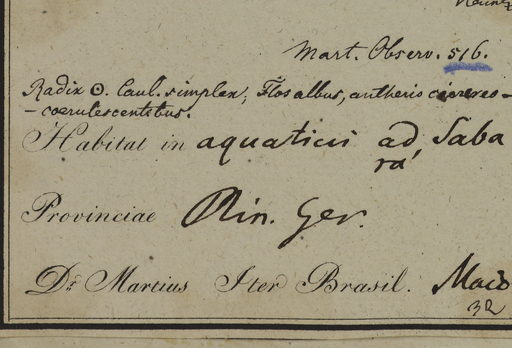 Mart. Observ. 516.
Radix ⊙. Caul. simplex, Flos albus, antheris cinereo-
-coerulescentibus.
Habitat in aquaticis ad Saba
ra,
Provinciae Min. Ger.
Dr. Martius Iter Brasil.